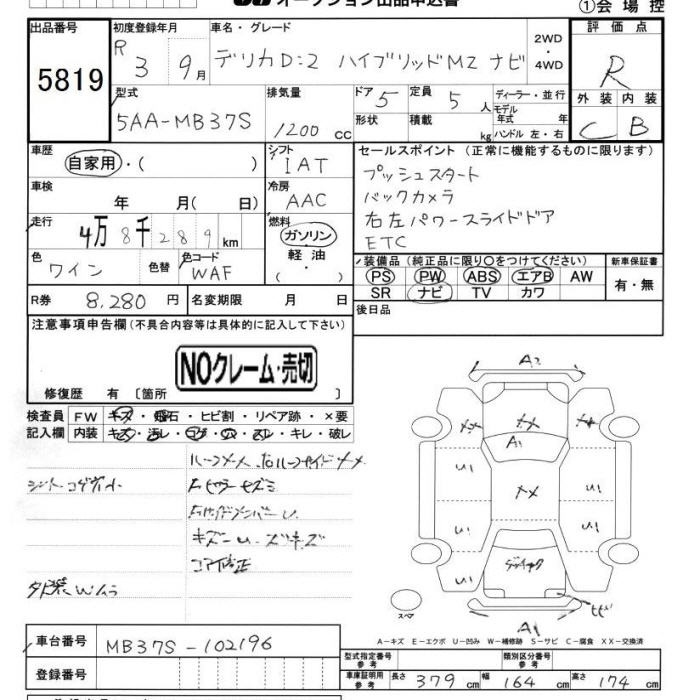 オークション出品申込書
①会場控
出品番号
5819
初度登録年月
R 3 9月
車名・グレード
デリカD:2 ハイブリッドMZ ナビ
2WD・4WD
評価点
R
型式
5AA-MB37S
排気量
1200 cc
ドア 5
定員 5 人
形状
積載 kg
ディーラー・並行
モデル年式 年
ハンドル 左・右
外装 内装
C B
車歴
自家用・( )
シフト
IAT
セールスポイント (正常に機能するものに限ります)
プッシュスタート
バックカメラ
右左パワースライドドア
ETC
車検
年 月( 日)
冷房
AAC
走行
4万 8千 2 8 9 km
燃料
ガソリン・軽油・( )
色
ワイン
色替
色コード
WAF
装備品 (純正品に限り○をつけてください)
PS PW ABS エアB AW
SR ナビ TV カワ
新車保証書
有・無
R券 8,280 円
名変期限 月 日
後日品
注意事項申告欄 (不具合内容等は具体的に記入して下さい)
NOクレーム・売切
修復歴 有 〔箇所 〕
検査員記入欄
FW キズ・飛石・ヒビ割・リペア跡・×要
内装 キズ・汚レ・コゲ・穴・スレ・キレ・破レ
外装Wムラ
A2
A1
A1
スペア
A-キズ E-エクボ U-凹み W-補修跡 S-サビ C-腐食 XX-交換済
車台番号 MB37S-102196
登録番号
型式指定番号 参考
類別区分番号 参考
車庫証明用 参考 長さ 379 cm 幅 164 cm 高さ 174 cm